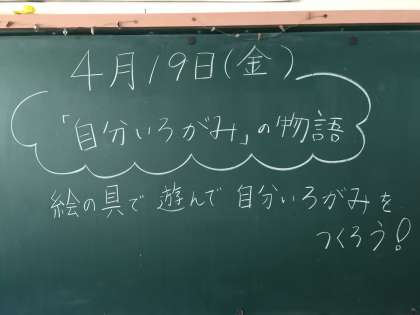 4月19日(金)
「自分いろがみ」の物語
絵の具で 遊んで 自分いろがみを
つくろう!